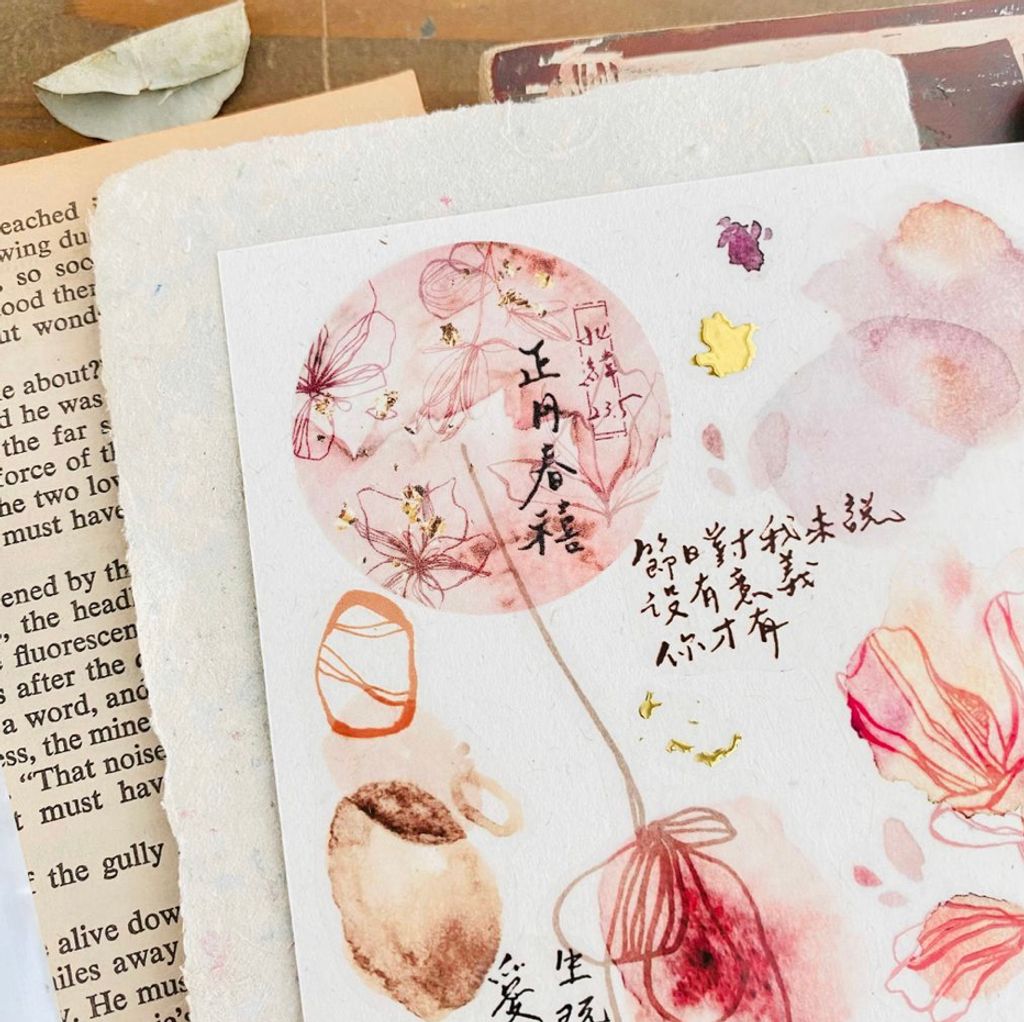 eached
wing du
, so soo
ood ther
ut wond
e about?"
d he was
the far s
force of th
he two lov
must have
ened by th
, the headl
fluorescen
s after the
a word, and
ess, the mine
"That noise
t must hav
f the gully
alive dow
iles away
y. He mus
正月春禧
北緯
23.5
節日對我來説
沒有意義
你才有
生
愛